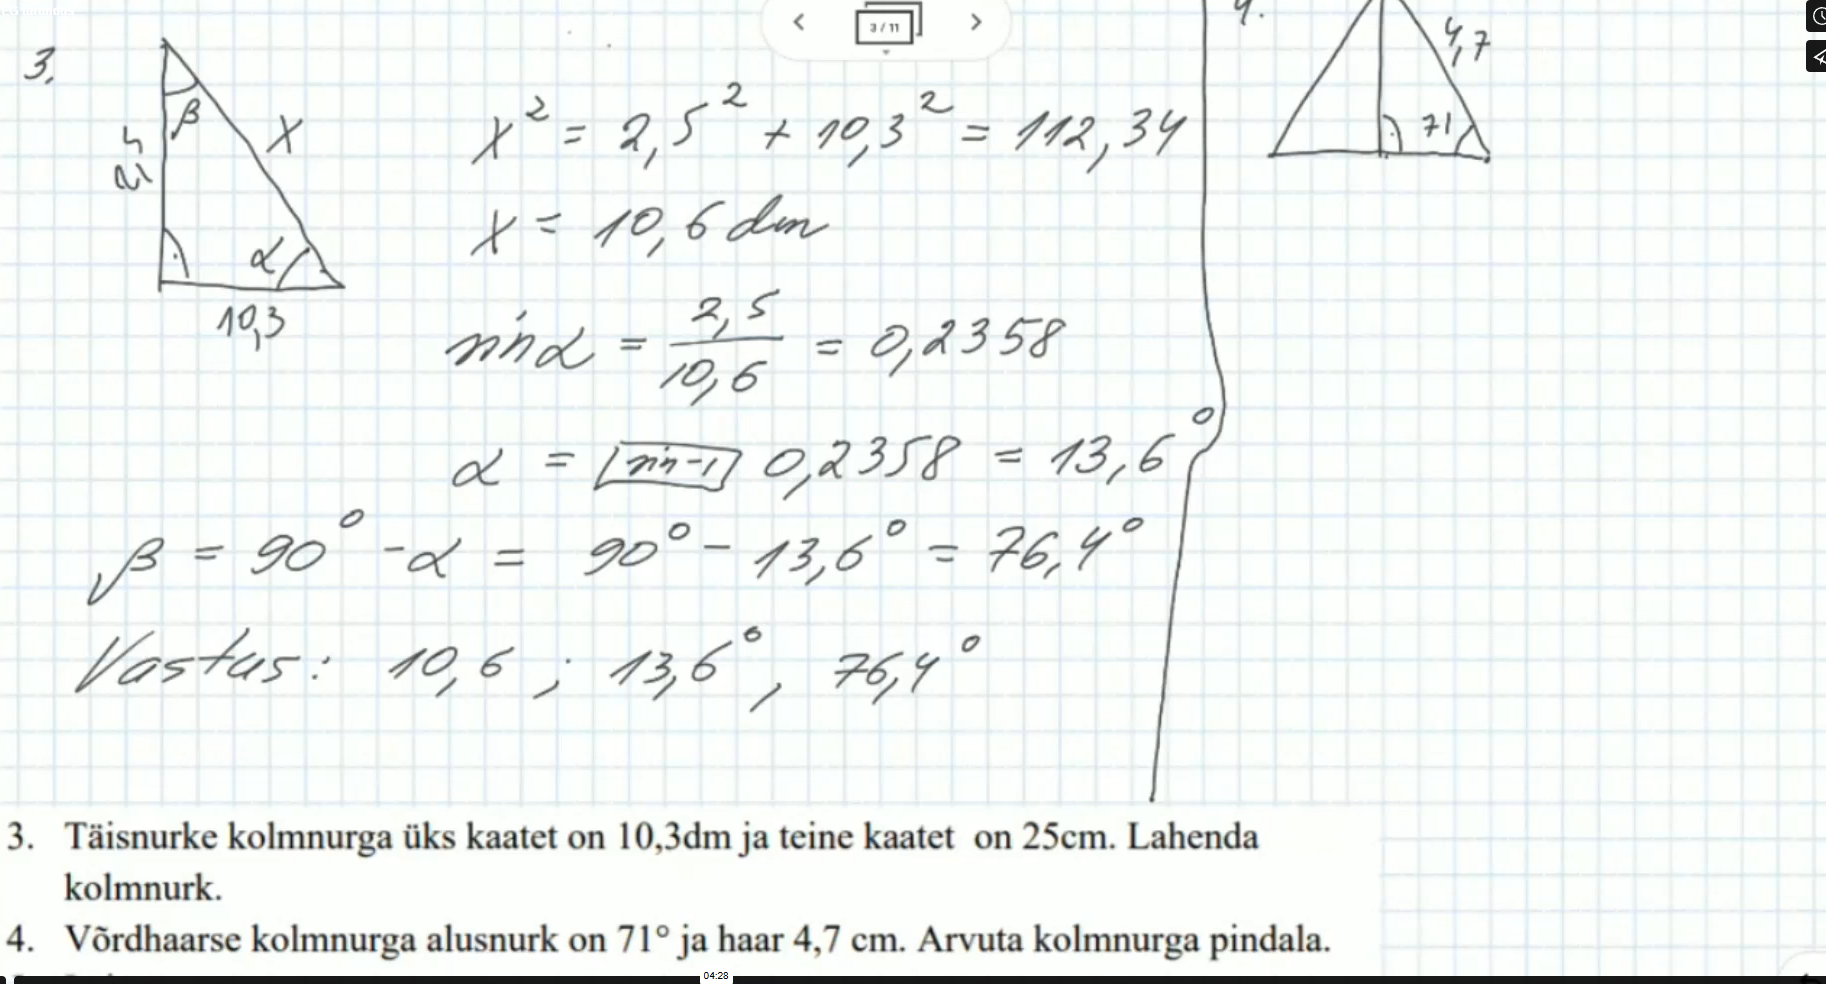 3.
β
X
2,5
α
10,3
3 / 11
x² = 2,5² + 10,3² = 112,34
x = 10,6 dm
sin α = 2,5/10,6 = 0,2358
α = [sin-1] 0,2358 = 13,6°
β = 90° - α = 90° - 13,6° = 76,4°
Vastus: 10,6 ; 13,6° , 76,4°
4.
4,7
71
3. Täisnurke kolmnurga üks kaatet on 10,3dm ja teine kaatet on 25cm. Lahenda
kolmnurk.
4. Võrdhaarse kolmnurga alusnurk on 71° ja haar 4,7 cm. Arvuta kolmnurga pindala.
04:28